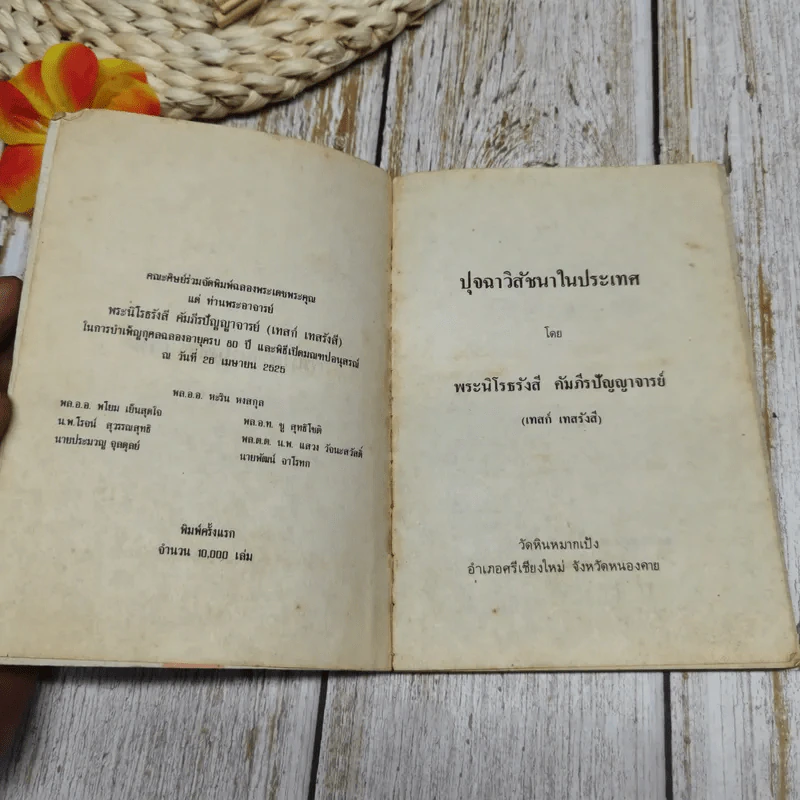 คณะศิษย์ร่วมจัดพิมพ์ฉลองพระเดชพระคุณ
แด่ ท่านพระอาจารย์
พระนิโรธรังสี คัมภีรปัญญาจารย์ (เทสก์ เทสรังสี)
ในการบำเพ็ญกุศลฉลองอายุครบ 80 ปี และพิธีเปิดมณฑปอนุสรณ์
ณ วันที่ 26 เมษายน 2525
พล.อ.อ. หะริน หงสกุล
พล.อ.อ. พโยม เย็นสุดใจ
น.พ.โรจน์ สุวรรณสุทธิ
นายประมวญ จุลดุลย์
พล.อ.ท. ชู สุทธิโชติ
พล.ต.ต. น.พ. แสวง วัจนะสวัสดิ์
นายพัฒน์ จาโรทก
พิมพ์ครั้งแรก
จำนวน 10,000 เล่ม
ปุจฉาวิสัชนาในประเทศ
โดย
พระนิโรธรังสี คัมภีรปัญญาจารย์
(เทสก์ เทสรังสี)
วัดหินหมากเป้ง
อำเภอศรีเชียงใหม่ จังหวัดหนองคาย